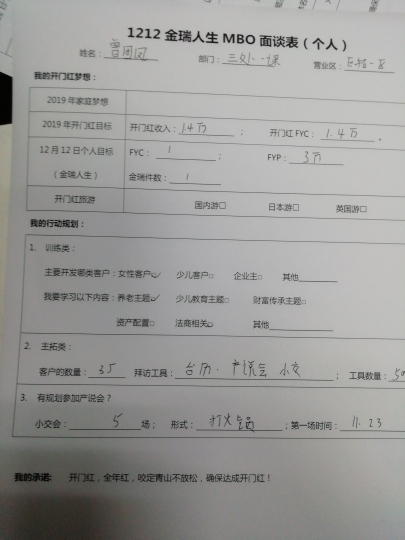 1212 金瑞人生 MBO 面谈表（个人）
姓名： 部门： 营业区：
我的开门红梦想：
2019 年家庭梦想
2019 年开门红目标 开门红收入：1.4万； 开门红 FYC：1.4万。
12 月 12 日个人目标 FYC：1； FYP：3万
（金瑞人生） 金瑞件数：1
开门红旅游 国内游□ 日本游□ 英国游□
我的行动规划：
1. 训练类：
主要开发哪类客户：女性客户☑ 少儿客户□ 企业主□ 其他
我要学习以下内容：养老主题☑ 少儿教育主题□ 财富传承主题□
资产配置□ 法商相关☑ 其他
2. 主拓类：
客户的数量：35 拜访工具：台历·产说会 小交； 工具数量：50
3. 有规划参加产说会？
小交会：5场； 形式：；第一场时间：11.23
我的承诺： 开门红，全年红，咬定青山不放松，确保达成开门红！